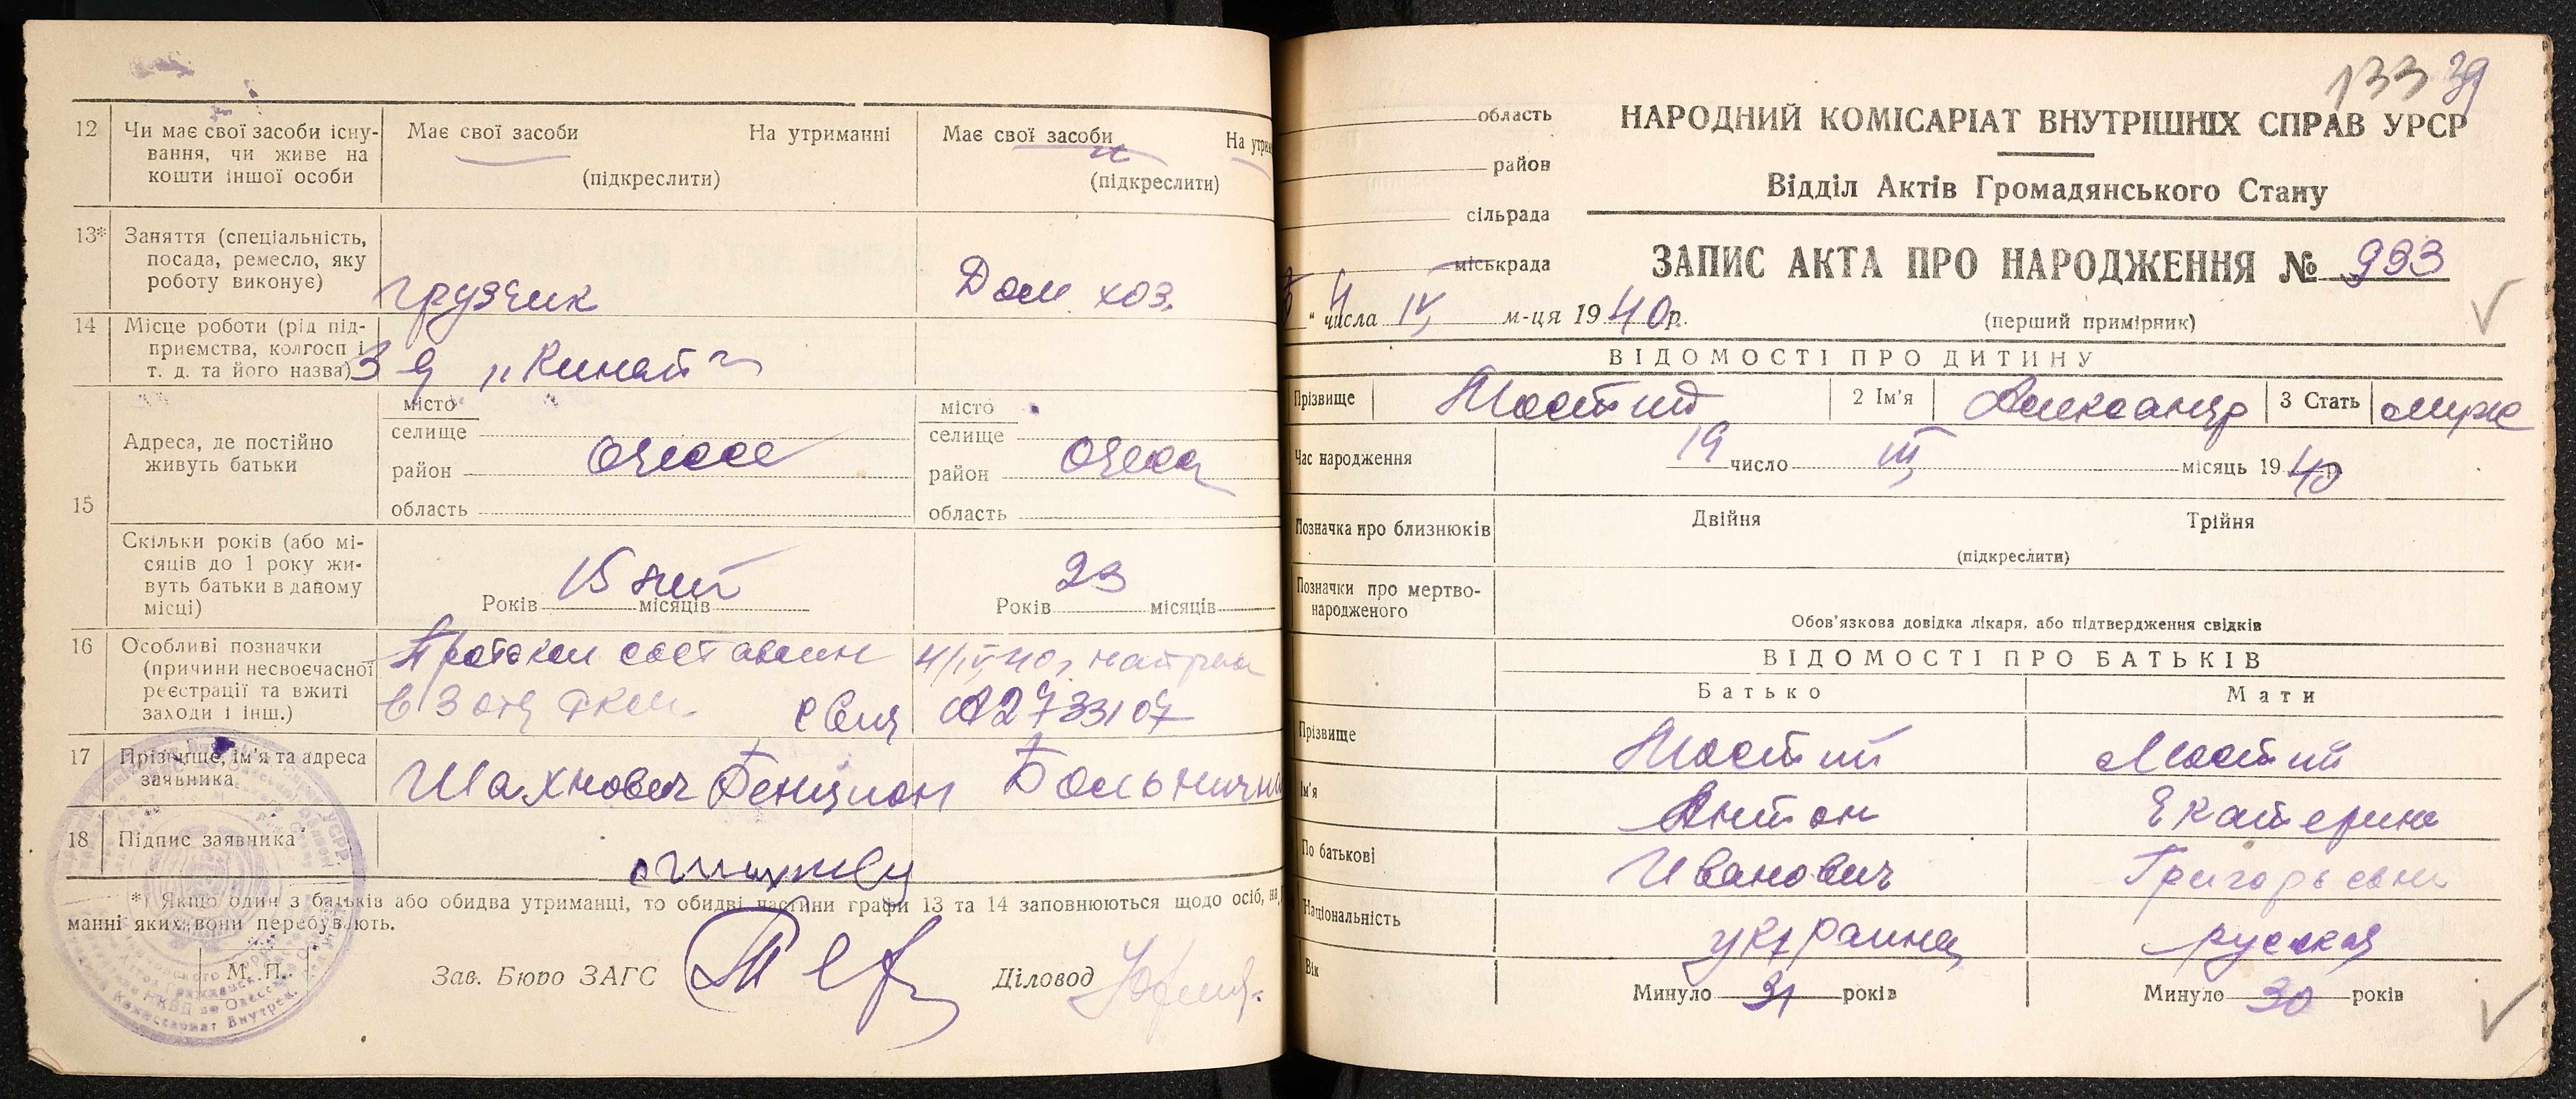 12 Чи має свої засоби існу-
вання, чи живе на
кошти іншої особи
Має свої засоби На утриманні
(підкреслити)
Має свої засоби На утри
(підкреслити)
13* Заняття (спеціальність,
посада, ремесло, яку
роботу виконує)
грузчик
Дом хоз.
14 Місце роботи (рід під-
приємства, колгосп і
т. д. та його назва)
15
Адреса, де постійно
живуть батьки
місто
селище
район
область
Одесса
місто
селище
район
область
Одесса
Скільки років (або мі-
сяців до 1 року жи-
вуть батьки в даному
місці)
15 лет
Років місяців
23
Років місяців
16 Особливі позначки
(причини несвоєчасної
реєстрації та вжиті
заходи і інш.)
Протокол составлен 4/IV 40
А2733107
17 Прізвище, ім'я та адреса
заявника
Шахнович Бенцион Больнична
18 Підпис заявника
*) Якщо один з батьків або обидва утриманці, то обидві частини графи 13 та 14 заповнюються щодо осіб, на
манні яких вони перебувають.
М. П.
Зав. Бюро ЗАГС
Діловод
133 39
область
район
сільрада
міськрада
НАРОДНИЙ КОМІСАРІАТ ВНУТРІШНІХ СПРАВ УРСР
Відділ Актів Громадянського Стану
ЗАПИС АКТА ПРО НАРОДЖЕННЯ № 993
(перший примірник)
4 " числа IV м-ця 1940р.
ВІДОМОСТІ ПРО ДИТИНУ
Прізвище
2 Ім'я Александр
3 Стать муж
Час народження
19 число III місяць 1940 р.
Позначка про близнюків
Двійня Трійня
(підкреслити)
Позначки про мертво-
народженого
Обов'язкова довідка лікаря, або підтвердження свідків
ВІДОМОСТІ ПРО БАТЬКІВ
Батько Мати
Прізвище
Ім'я Антон Екатерина
По батькові Иванович Григорьевна
Національність украинец русская
Вік
Минуло 31 років
Минуло 30 років